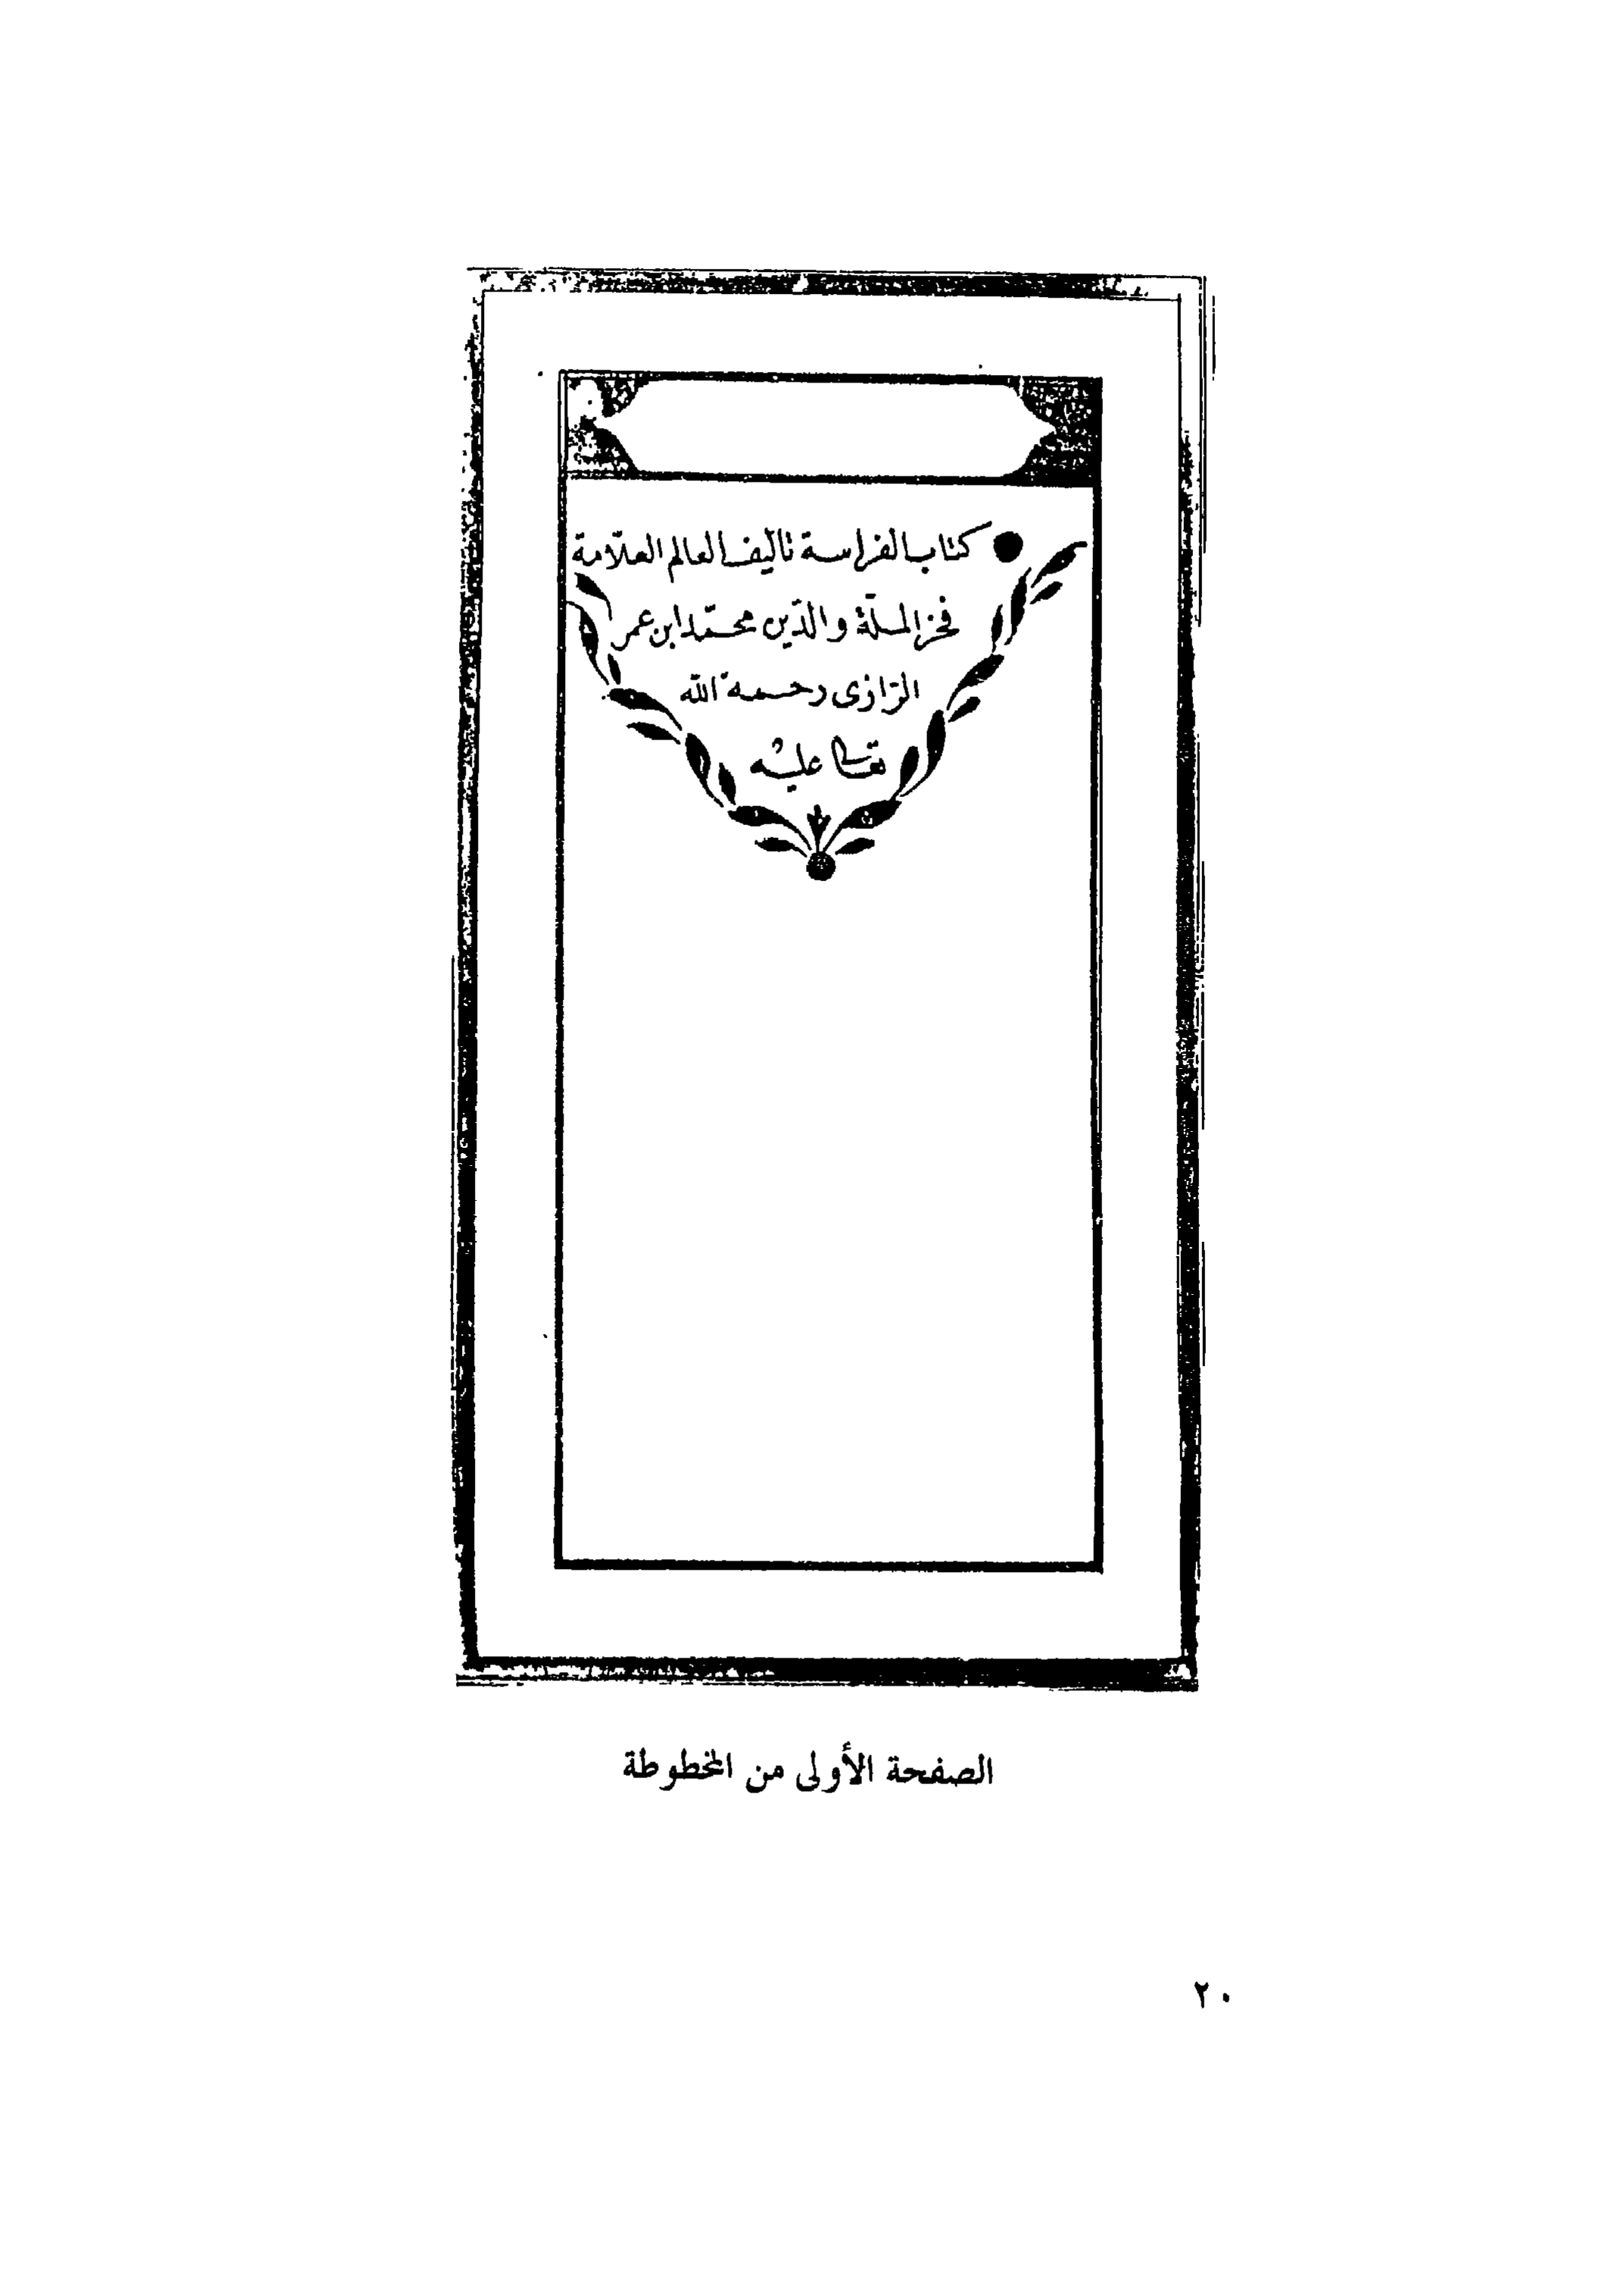 كتاب الفراسة تأليف العالم العلّامة
فخر الملّة والدّين محمّد ابن عمر
الرّازى رحمة الله
تعالى عليه
الصفحة الأولى من المخطوطة
٢٠